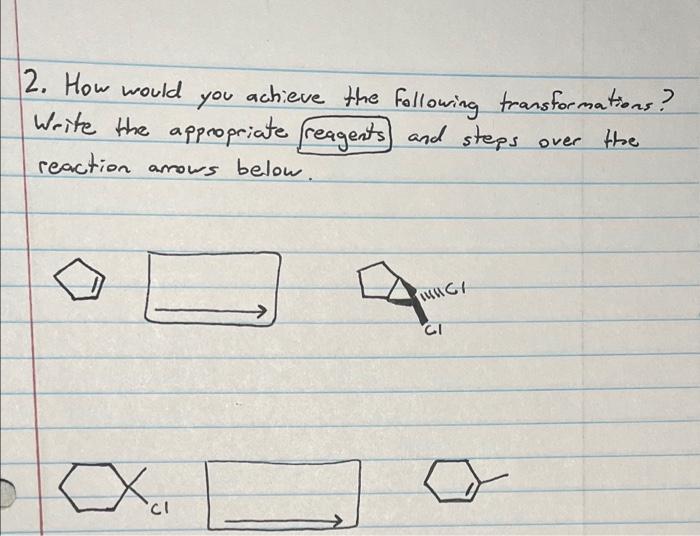 2. How would you achieve the following transformations?
Write the appropriate reagents and steps over the
reaction arrows below.
Cl
Cl
Cl